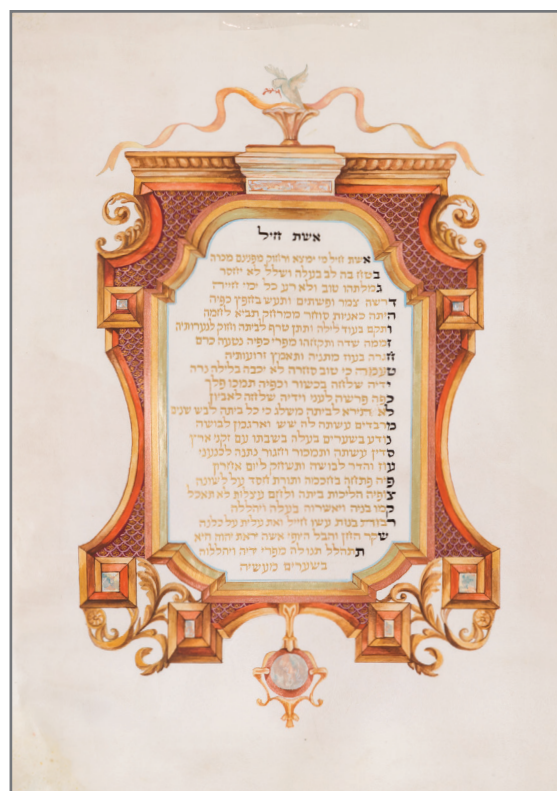 אשת חיל
אשת חיל מי ימצא ורחוק מפנינם מכרה
בטח בה לב בעלה ושלל לא יחסר
גמלתהו טוב ולא רע כל ימי חייה
דרשה צמר ופשתים ותעש בחפץ כפיה
היתה כאניות סוחר ממרחק תביא לחמה
ותקם בעוד לילה ותתן טרף לביתה וחוק לנערותיה
זממה שדה ותקחהו מפרי כפיה נטעה כרם
חגרה בעוז מתניה ותאמץ זרועותיה
טעמה כי טוב סחרה לא יכבה בלילה נרה
ידיה שלחה בכשור וכפיה תמכו פלך
כפה פרשה לעני וידיה שלחה לאביון
לא תירא לביתה משלג כי כל ביתה לבש שנים
מרבדים עשתה לה שש וארגמן לבושה
נודע בשערים בעלה בשבתו עם זקני ארץ
סדין עשתה ותמכור וחגור נתנה לכנעני
עוז והדר לבושה ותשחק ליום אחרון
פיה פתחה בחכמה ותורת חסד על לשונה
צופיה הליכות ביתה ולחם עצלות לא תאכל
קמו בניה ויאשריה בעלה ויהללה
רבות בנות עשו חייל ואת עלית על כלנה
שקר החן והבל היופי אשה יראת יהוה היא
תתהלל תנו לה מפרי ידיה ויהללוה
בשערים מעשיה